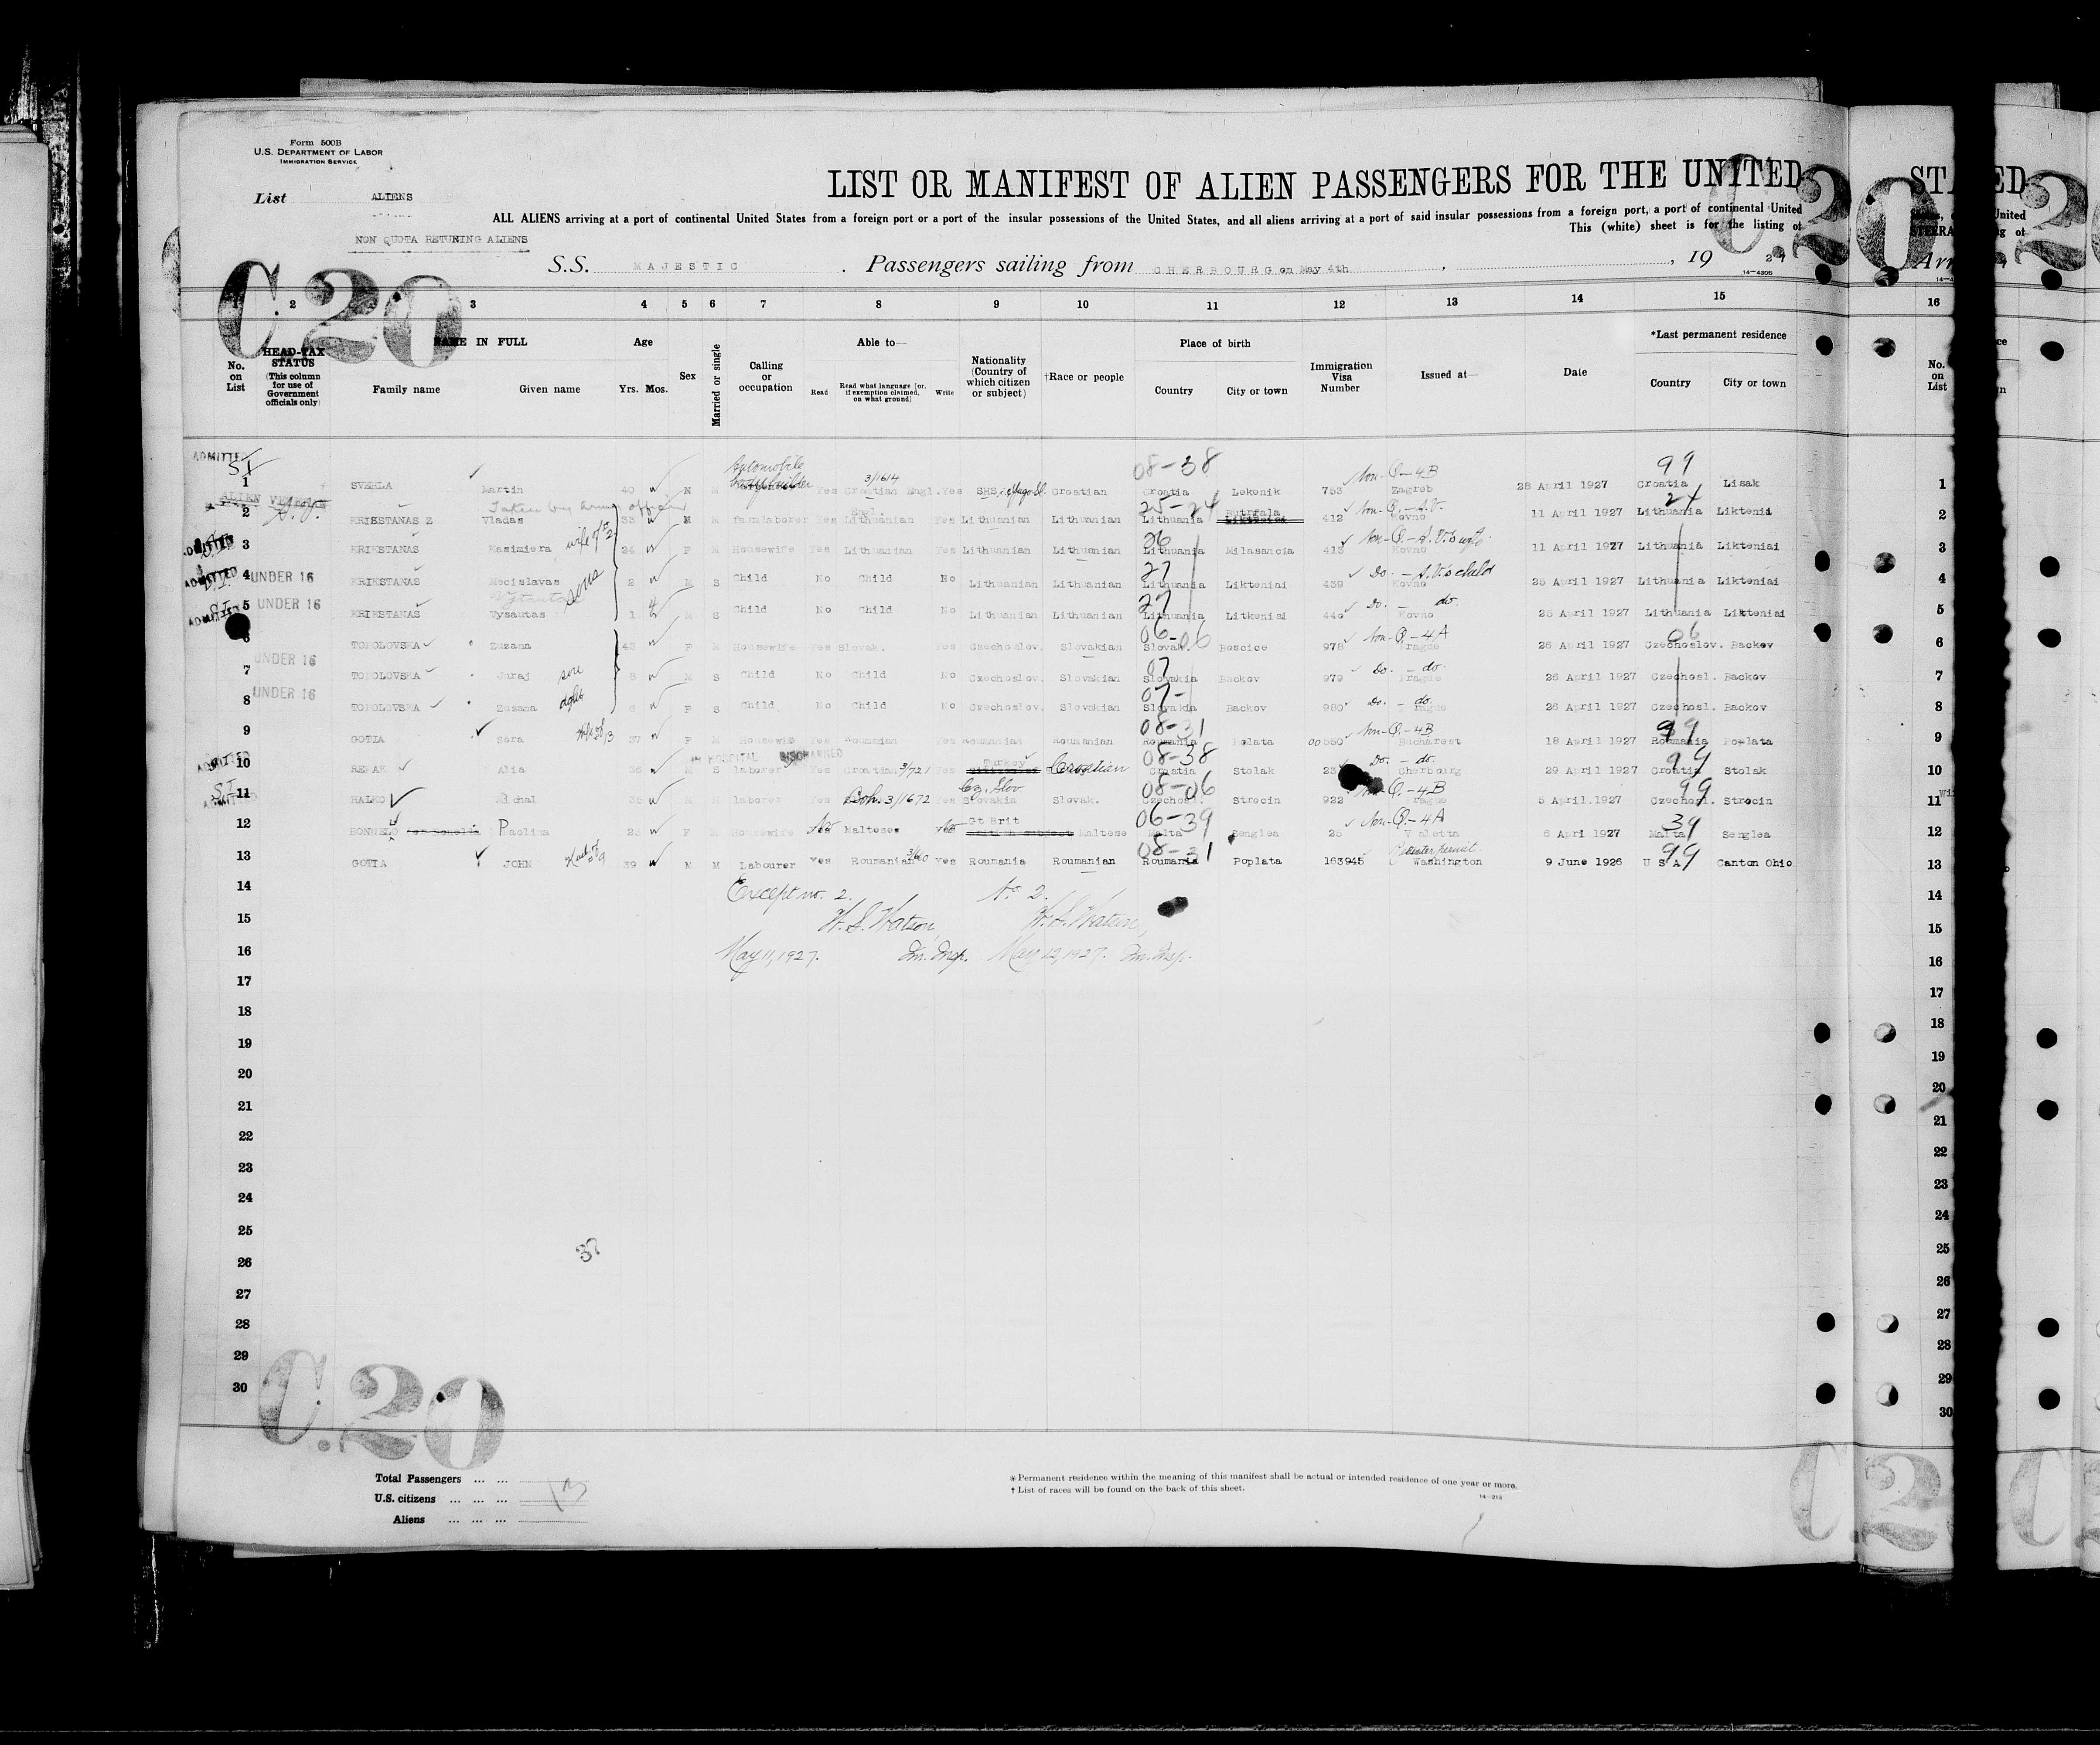 Form 500B
U.S. DEPARTMENT OF LABOR
IMMIGRATION SERVICE
List ALIENS
NON QUOTA RETURING ALIENS
LIST OR MANIFEST OF ALIEN PASSENGERS FOR THE UNITED
ALL ALIENS arriving at a port of continental United States from a foreign port or a port of the insular possessions of the United States, and all aliens arriving at a port of said insular possessions from a foreign port, a port of continental United
This (white) sheet is for the listing of
S.S. MAJESTIC . Passengers sailing from CHERBOURG on May 4th , , 19 27
14-4205
C.20
1 2 3 4 5 6 7 8 9 10 11 12 13 14 15 16
No. on List
HEAD-TAX STATUS (This column for use of Government officials only)
NAME IN FULL
Family name Given name
Age
Yrs. Mos.
Sex
Married or single
Calling or occupation
Able to—
Read Read what language [or, if exemption claimed, on what ground] Write
Nationality (Country of which citizen or subject)
†Race or people
Place of birth
Country City or town
Immigration Visa Number
Issued at—
Date
*Last permanent residence
Country City or town
ADMITTED Automobile 3/1614 08-38 Non-Q-4B 99
1 SVEHLA Martin 40 M Yes Croatian Engl. Yes SHS Croatian Croatia Lekenik 753 Zagreb 28 April 1927 Croatia Lisak
Taken by Army officer Engl. 25-24 Non-Q-A.V. 24
2 KRIKSTANAS Z Vladas 33 M M farmlaborer Yes Lithuanian Yes Lithuanian Lithuanian Lithuania 412 Kovno 11 April 1927 Lithuania Liktenia
3 KRIKSTANAS Kasimiera wife of #2 24 F M Housewife Yes Lithuanian Yes Lithuanian Lithuanian 26 Lithuania Milasancia 413 Non-Q-A.V.'s wife Kovno 11 April 1927 Lithuania Likteniai
4 UNDER 16 KRIKSTANAS Mecislavas sons 2 M S Child No Child No Lithuanian Lithuanian 27 Lithuania Likteniai 439 Do. - A.V.'s child Kovno 25 April 1927 Lithuania Likteniai
5 UNDER 16 KRIKSTANAS Vysautas 1 M S Child No Child No Lithuanian Lithuanian 27 Lithuania Litkeniai 440 Do. - do. Kovno 25 April 1927 Lithuania Likteniai
6 TOPOLOVSKA Zuzana 43 F M Housewife Yes Slovak. Yes Czechoslov. Slovakian 06-06 Slovak. Boscice 978 Non-Q.-4A Prague 26 April 1927 06 Czechoslov. Backov
7 UNDER 16 TOPOLOVSKA Juraj son 8 M S Child No Child No Czechoslov. Slovakian 07 Slovakia Backov 979 Do. - do. Prague 26 April 1927 Czechosl. Backov
8 UNDER 16 TOPOLOVSKA Zuzana dghtr 6 F S Child No Child No Czechoslov. Slovakian 07- Slovakia Backov 980 Do. - do. Prague 26 April 1927 Czechosl. Backov
9 GOTIA Sora Wife of 13 37 F M Housewife Yes Roumanian Yes Roumanian Roumanian 08-31 Roumania Polata Non-Q.-4B Bucharest 18 April 1927 99 Roumania Poplata
IN HOSPITAL DISCHARGED
10 REPAK Alia 36 M S laborer Yes Croatian 3/721 Yes Turkey Croatian 08-38 Croatia Stolak Do. - do. Cherbourg 29 April 1927 99 Croatia Stolak
11 HALKO Michal 35 M M laborer Yes Boh. 3/1672 Yes Cz. Slov Slovakia Slovak. 08-06 Czechosl. Strocin 922 Non-Q.-4B Prague 5 April.1927 99 Czechosl. Strocin
12 Paolina 23 F M Housewife Maltese Gt Brit Maltese 06-39 Malta Senglea 25 Non-Q.-4A Valetta 6 Apri 1927 39 Malta Senglea
13 GOTIA JOHN Husb. of 9 39 M M Labourer yes Roumanian yes Roumania Roumanian 08-31 Roumania Poplata 163945 Reenter permit Washington 9 June 1926 99 U S A Canton Ohio
14 Except no. 2. No 2.
15 W. S. Watson, W. S. Watson,
16 May 11, 1927. Im. Insp. May 12, 1927. Im. Insp.
17
18
19
20
21
22
23
24
25
37
26
27
28
29
30
C.20
Total Passengers ... ... 13
U.S. citizens ... ... ...
Aliens ... ... ...
* Permanent residence within the meaning of this manifest shall be actual or intended residence of one year or more.
† List of races will be found on the back of this sheet.